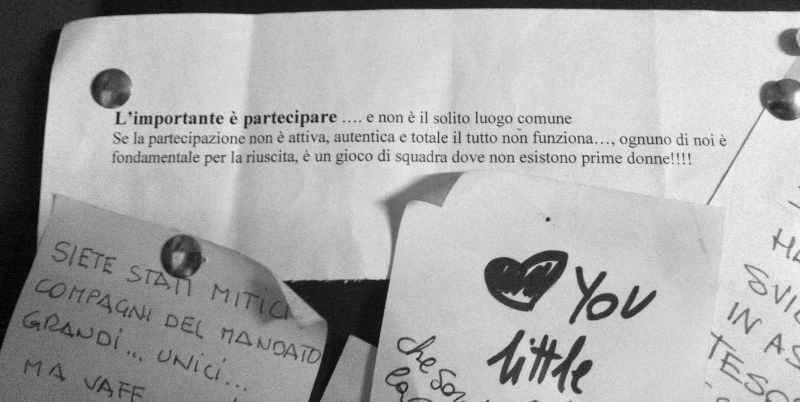 L'importante è partecipare .... e non è il solito luogo comune
Se la partecipazione non è attiva, autentica e totale il tutto non funziona…, ognuno di noi è
fondamentale per la riuscita, è un gioco di squadra dove non esistono prime donne!!!!
SIETE STATI MITICI
COMPAGNI DEL MANDATO
GRANDI... UNICI...
MA VAFF
YOU
little
che son
IN AS
TESO